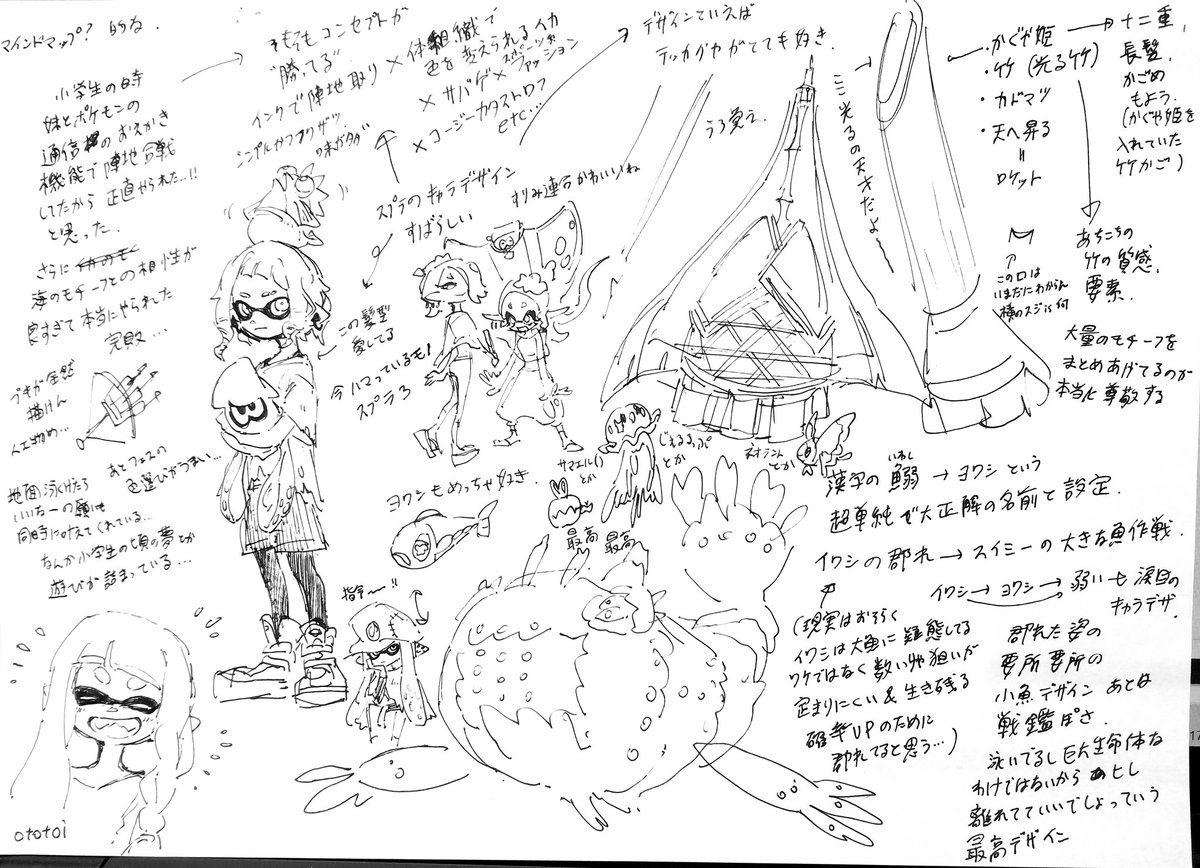 マインドマップ? 的な.
小学生の時
妹とポケモンの
通信のおえかき
機能で陣地合戦
してたから 正直やられた…!!
と思った.
さらに
海のモチーフとの相性が
良すぎて本当にやられた
完敗…
ブキが全然
描けん
人工物め…
あとフェスの
色選びがうまい…
地面泳げたら
いいなーの願いも
同時に叶えてくれている…
なんか小学生の頃の夢とか
遊びが詰まっている…
そもそもコンセプトが
"勝ってる"
インクで陣地取り × 体組織で
色を変えられるイカ
× サバゲ × スポーツ系
ファッション
× コージーカタストロフ
etc…
スプラのキャラデザイン
すばらしい
すりみ連合かわいいね
この髪型
愛してる
今ハマっているモノ
スプラ3
デザインていえば
テッカグヤがとても好き.
うろ覚え.
ここ光るの天才だよ〜
・かぐや姫
・竹 (光る竹)
・カドマツ
・天へ昇る
=
ロケット
十二重.
長髪.
かごめ
もよう.
(かぐや姫を
入れていた
竹かご)
この口は
いまだにわからん
横のスジis何
あちこちの
竹の質感.
要素.
大量のモチーフを
まとめあげてるのが
本当に尊敬する
じぇるるっぷ
とか
サマエル()
とか
ネオラント
とか
最高 最高
ヨワシもめっちゃ好き.
指字〜!!
漢字の鰯 → ヨワシ という
いわし
超単純で大正解の名前と設定.
イワシの群れ → スイミーの大きな魚作戦.
イワシ → ヨワシ → 弱いも 涙目の
キャラデザ
(現実はおそらく
イワシは大魚に擬態してる
ワケではなく数いりゃ狙いが
定まりにくい & 生き残る
確率UPのために
群れてると思う…)
群れた姿の
要所要所の
小魚デザイン あとは
戦艦ぽさ.
泳いでるし巨大生命体な
わけではないから
離れてていいでしょっていう
最高デザイン
ototoi
17